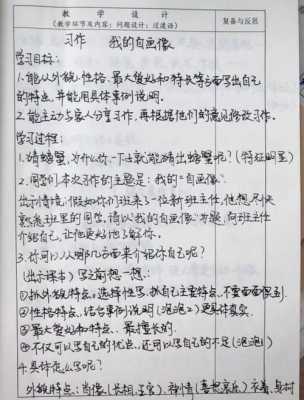 教 学 设 计
(教学环节及内容；问题设计；过渡语)
复备与反思
习作 我的自画像
学习目标：
1.能从外貌、性格、最大爱好和特长等方面写出自己
的特点，并能用具体事例说明。
2.能主动与家人分享习作，再根据他们的意见修改习作。
学习过程：
1.猜螃蟹，为什么你一下就能猜出螃蟹呢？(特征明显)
2.同学们，本次习作的主题是：我的"自画像"
出示情境，假如你们班来了一位新班主任，他想尽快
熟悉班里的同学。请以"我的自画像"为题，向班主任
介绍自己，让他更好地了解你。
3.你可以从哪几方面来介绍你自己呢？
(出示课本) 写之前想一想：
①抓外貌特点。选择性写，抓自己主要特点，不要面面俱到
②性格特点，结合事例说明(泡泡2)更具体真实
③最大爱好和特点、最擅长的
④不仅可以写自己的优点，还可以写自己的不足(泡泡1)
4.具体怎么写呢？
外貌特点：肖像(长相、五官)、神情(喜怒哀乐)、衣着、身材